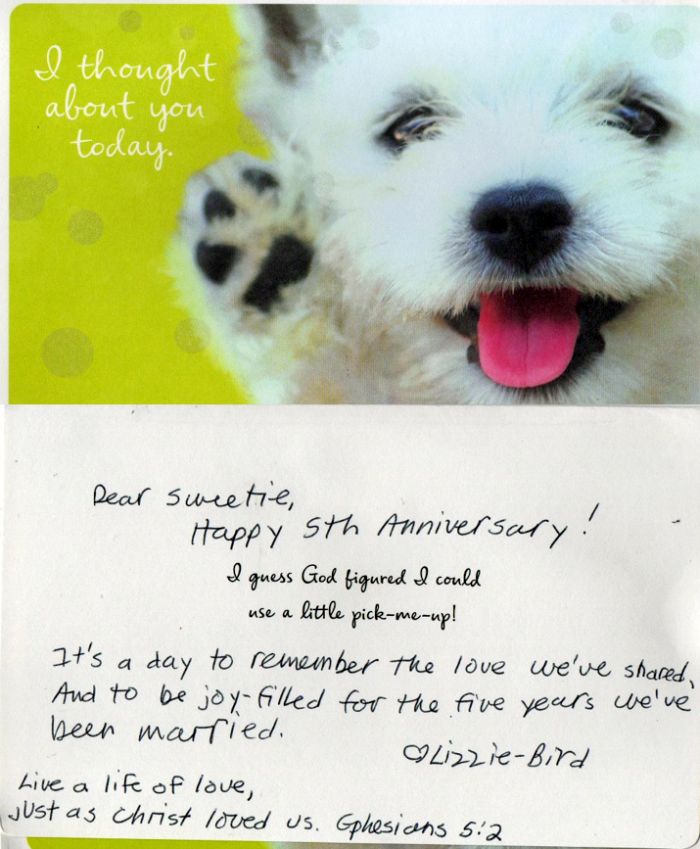 I thought
about you
today.
Dear Sweetie,
Happy 5th Anniversary!
I guess God figured I could
use a little pick-me-up!
It's a day to remember the love we've shared,
And to be joy-filled for the five years we've
been married.
♡Lizzie-Bird
Live a life of love,
just as Christ loved us. Ephesians 5:2